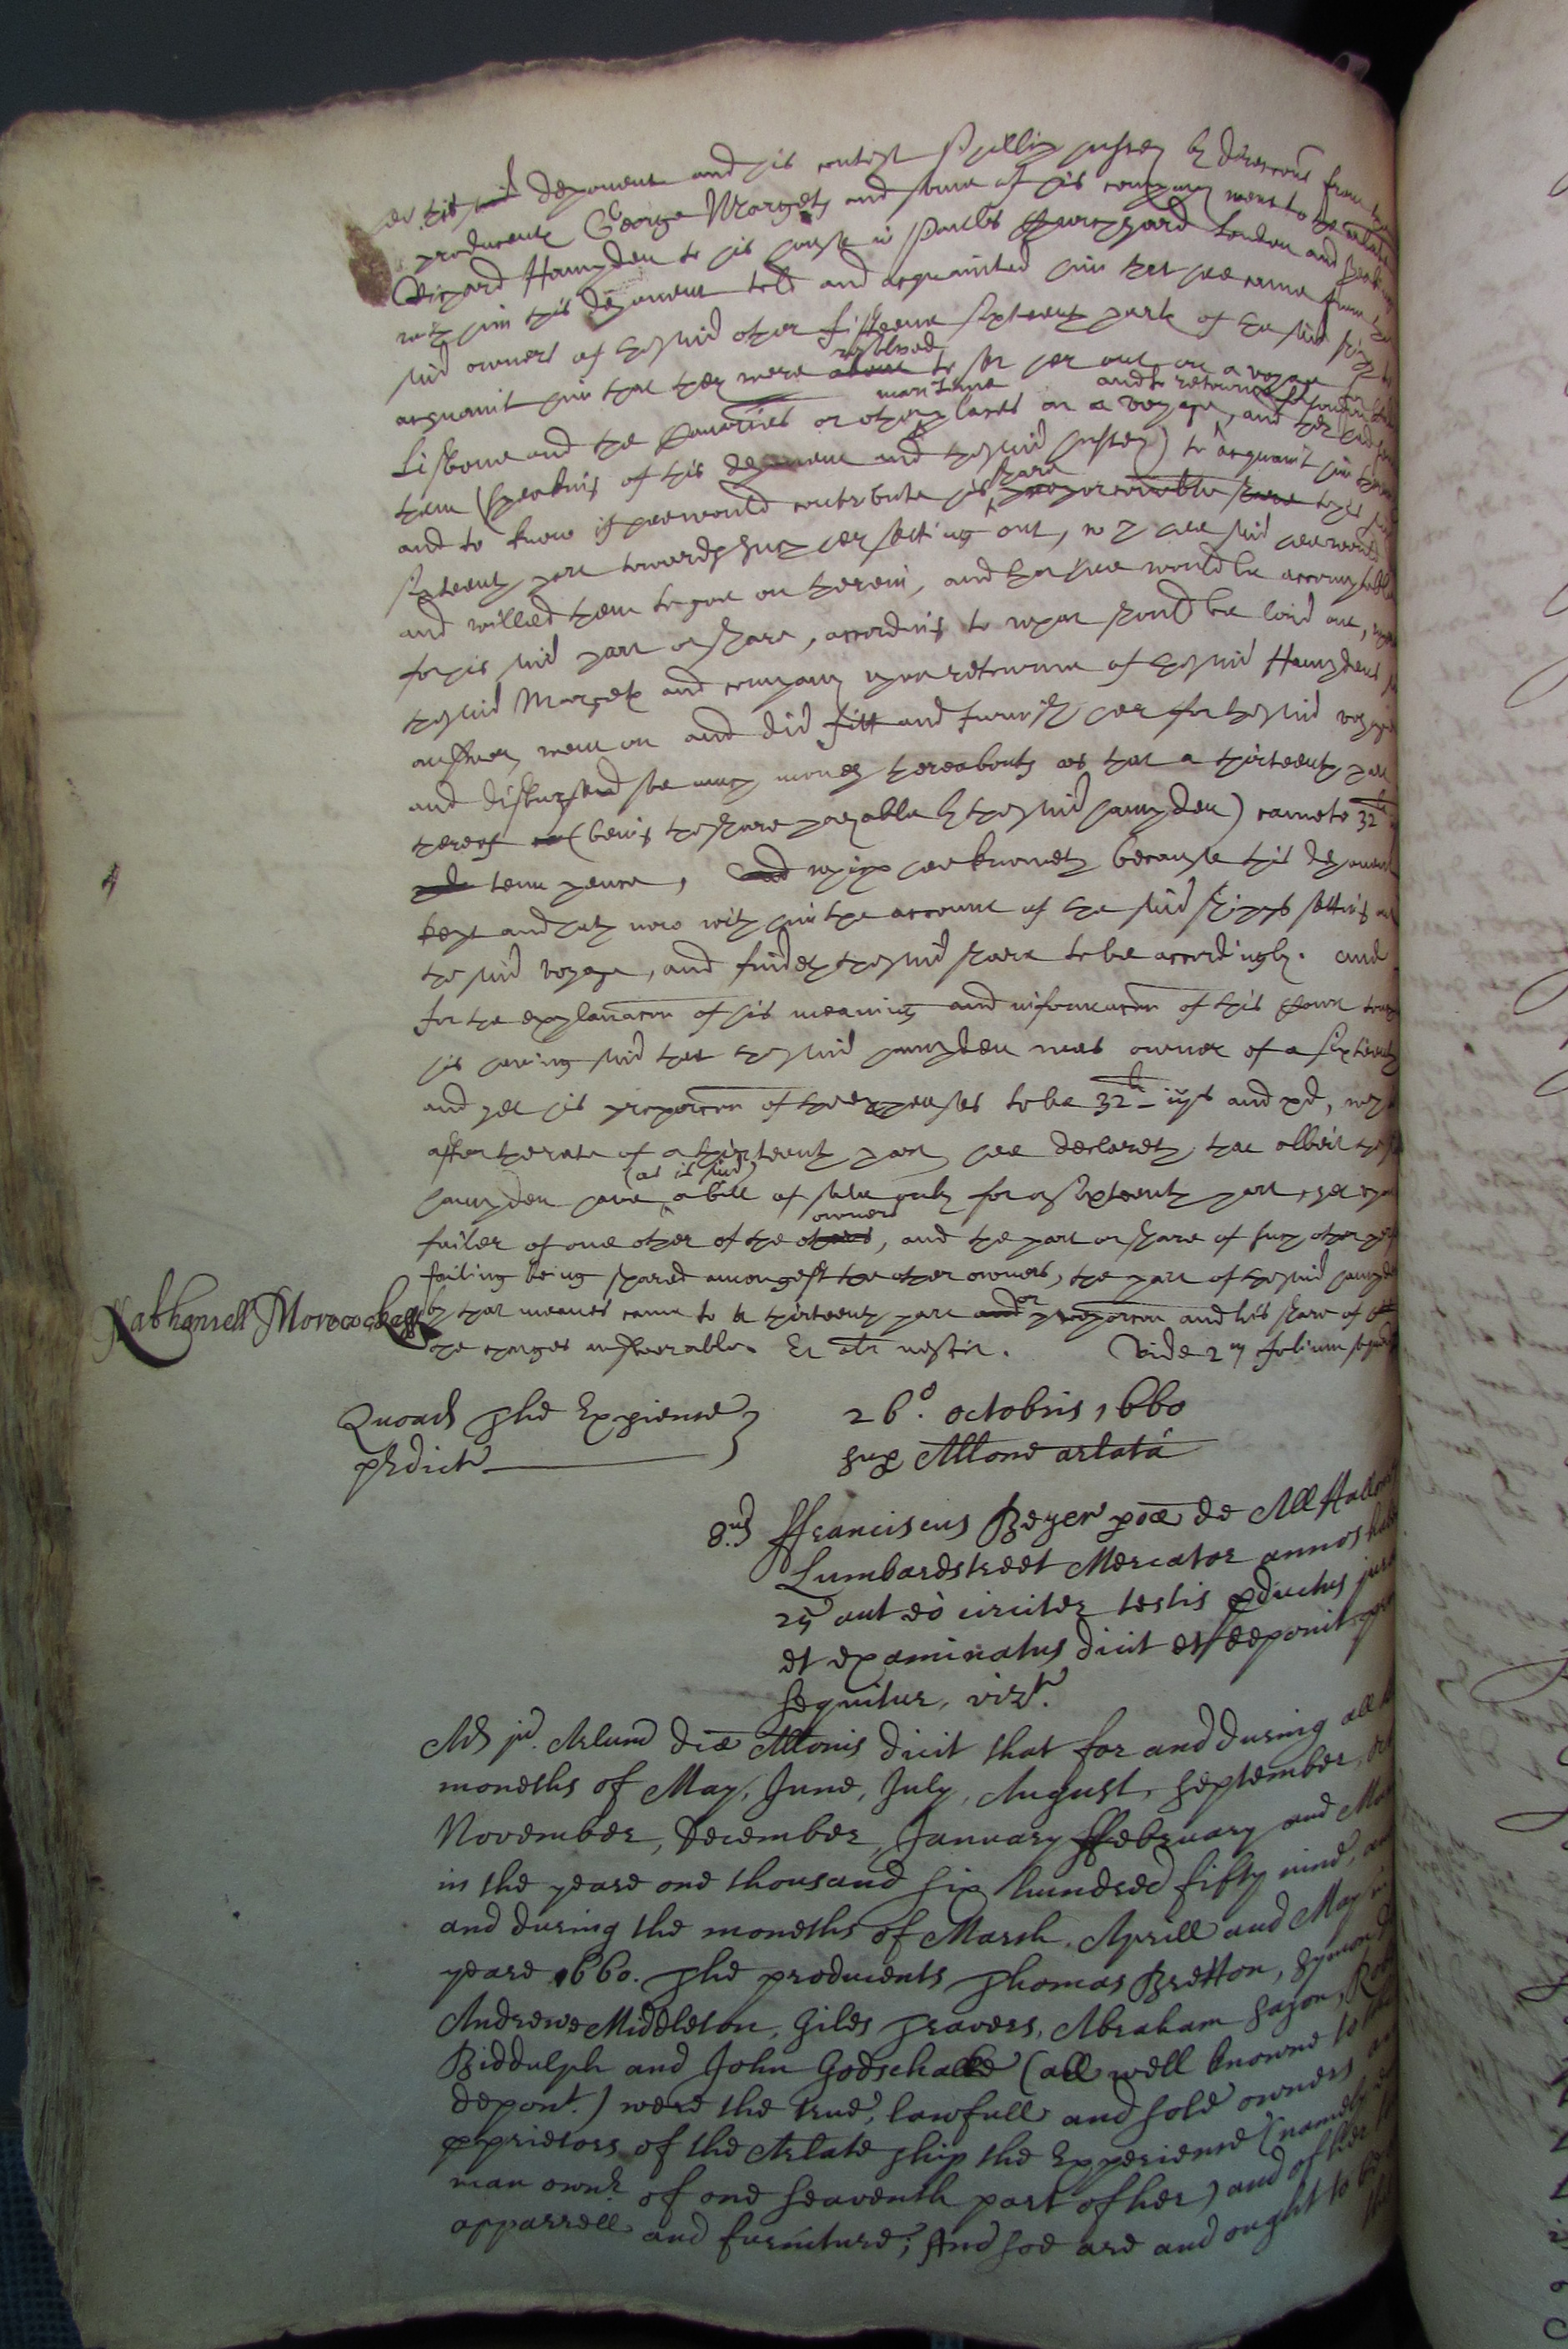 this deponent and his contest Phillip hussey by direccons from the
producents George Margets and some of his company went to the arlate
Richard Hampden to his house in Paules Churchyard London and speaking
with him this deponent told and acquainted him that hee came from the
said owners of the said other fifteene sixteenth parts of the said shipp to
acquaint him that they were about resolved to set her out on a voyage for
Lisbone and the Canaries or other places on a voyage, and they had sent
maritime and to returne
them (speaking of this deponent and the said hussey) to acquaint him therewith
and to know if hee would contribute his share proporconable share to his said
sixteenth part towards such her setting out, wch hee said hee would
and willed them to goe on therein, and that hee would be accomptable
for his said part or share, according to what should be laid out,
the said Margets and company upon returne of the said Hampdens
answer, went on and did fitt and furnish her for the said voyage
and disbursed soe much money thereabouts as that a thirteenth part
thereof (being the share payable by the said hampden) came to 32 li
tenn pence, and which hee knoweth because this deponent
kept and hath now with him the account of the said shipps setting out
the said voyage, and findeth the said share to be accordingly. and
for the explanacon of his meaning and informacon of this Court touching
his having said that the said hampden was owner of a sixteenth
and yet his proporcon of the expenses to be 32 li - iijs and xd, wch
after the rate of a thirteenth part, hee declareth that albeit the sd
hampden have (as is said) a bill of sale only for a sixteenth part, yet upon
failer of one other of the others owners, and the part or share of such other
failing being shared amongest the other owners, the part of the said hampden
Nathaniell Morecocke by that meanes came to be thirteenth part and or proporcon and his share of
the charges answerable. Et alr nescit. Vide 2m folium sequens
Quoad The Expience
prdict
26o. octobris 1660
Sup Allone arlata
8us ffranciscus Beyer poæ de All Hallowes
Lumbardstreet Mercator annos habens
25 aut eò circiter testis pductus juratus
et examinatus dicit et deponit prout
sequitur, vizt.
Ad jd. Arlum dicæ Allonis dicit that for and during all the
moneths of May, June, July, August, September, October
November, December, January ffebruary and March
in the yeare one thousand six hundred fifty nine, and
and during the moneths of March, Aprill and May in
yeare 1660. The producents Thomas Bretton, Symon
Andrewe Middleton, Giles Travers, Abraham Sayon,
Biddulph and John Godschalke (all well knowne to this
depont.) were the true, lawfull and sole owners and
pprietors of the Arlate ship the Experience (namely each
man ownr of one seaventh part of her) and of her
apparrell and furniture; And soe are and ought to be